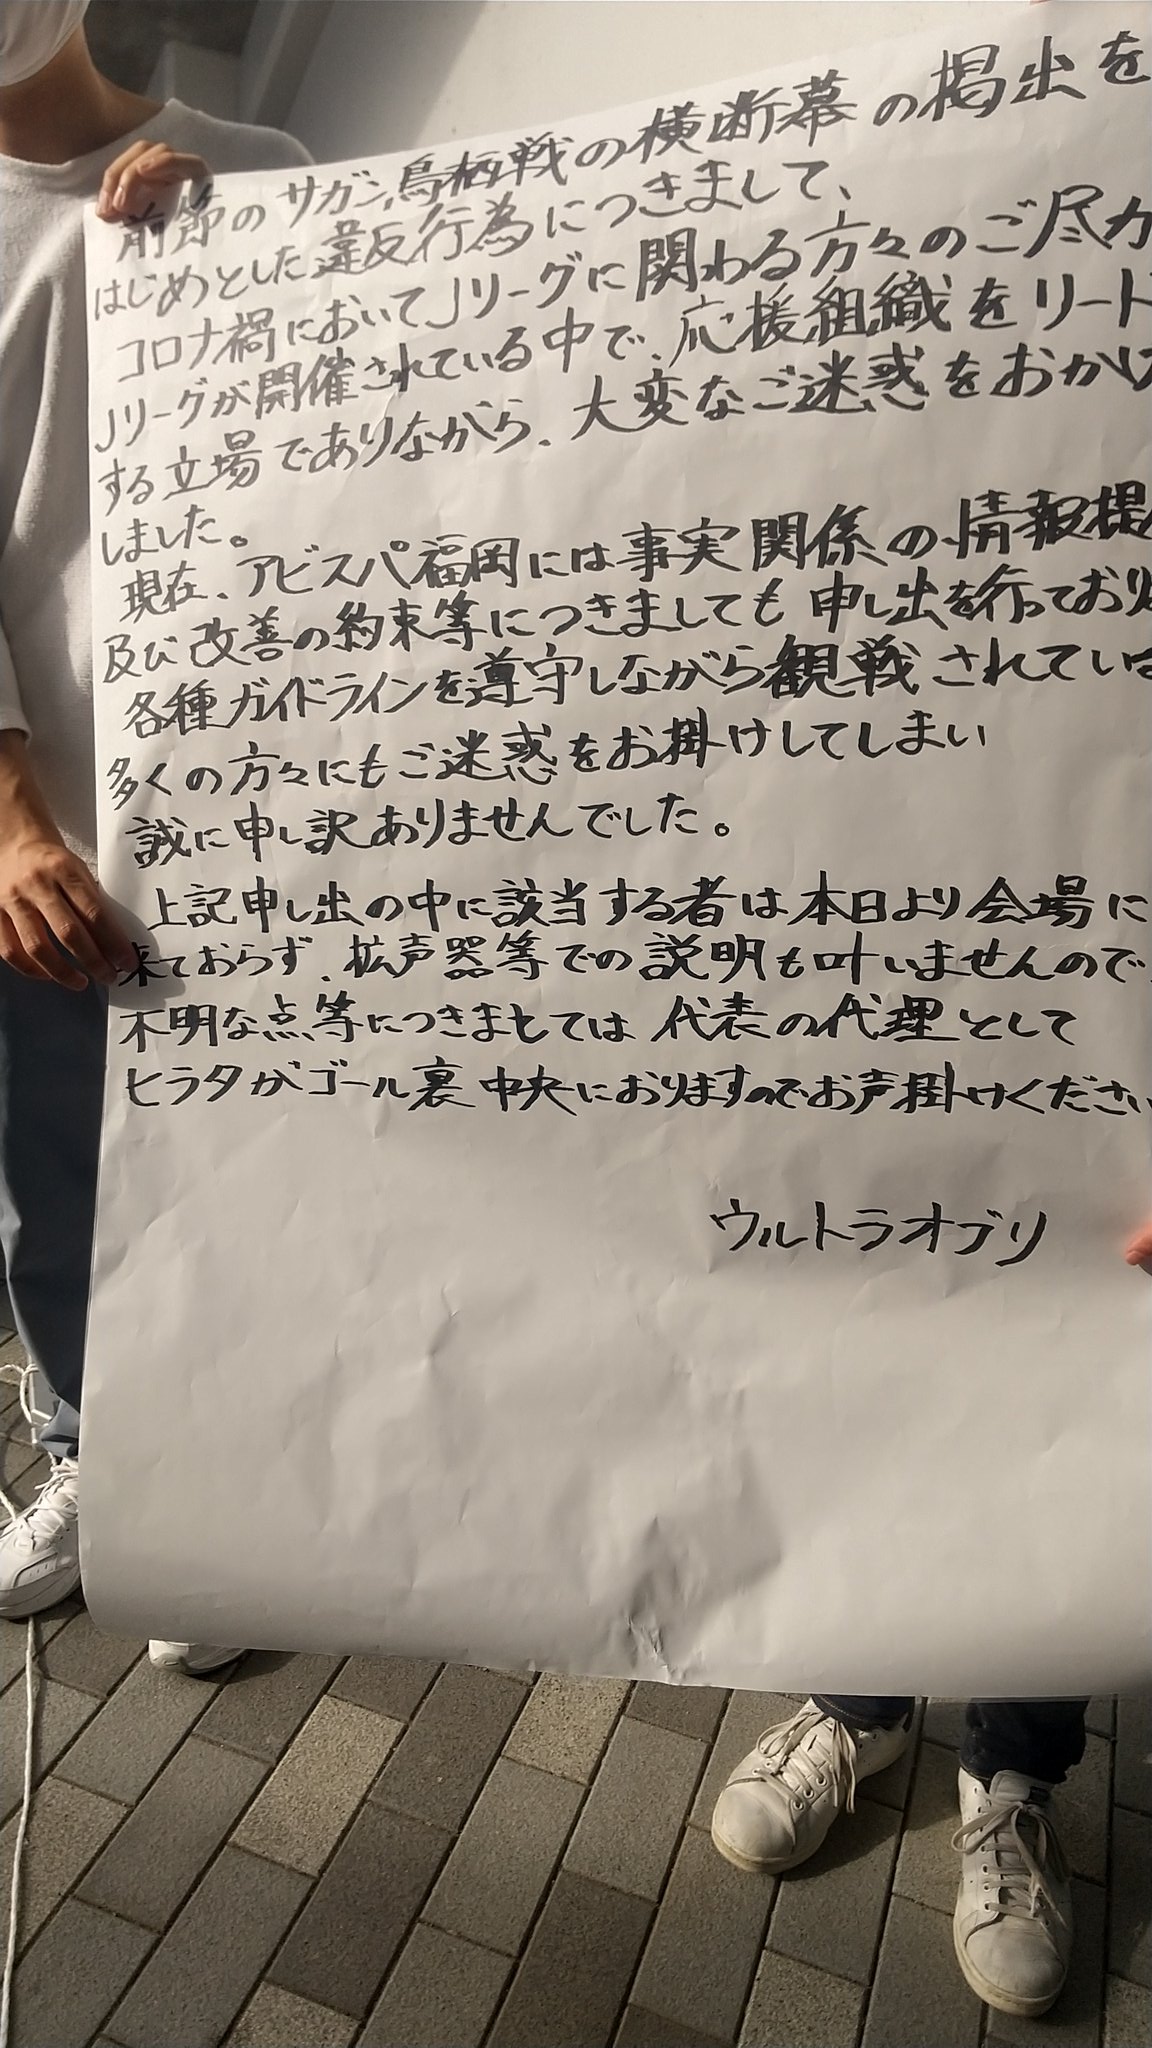 前節のサガン鳥栖戦の横断幕の掲出を
はじめとした違反行為につきまして、
コロナ禍においてJリーグに関わる方々のご尽力
Jリーグが開催されている中で、応援組織をリード
する立場でありながら、大変なご迷惑をおかけ
しました。
現在、アビスパ福岡には事実関係の情報提
及び改善の約束等につきましても申し出を行っており
各種ガイドラインを遵守しながら観戦されている
多くの方々にもご迷惑をお掛けしてしまい
誠に申し訳ありませんでした。
上記申し出の中に該当する者は本日より会場に
来ておらず、拡声器等での説明も叶いませんので、
不明な点等につきましては代表の代理として
ヒラタがゴール裏中央におりますのでお声掛けください
ウルトラオブリ